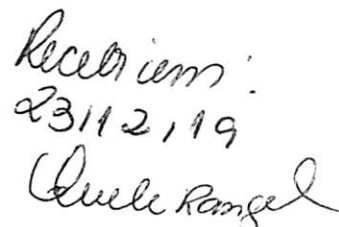 Recebi em:
23/12/19
Rangel